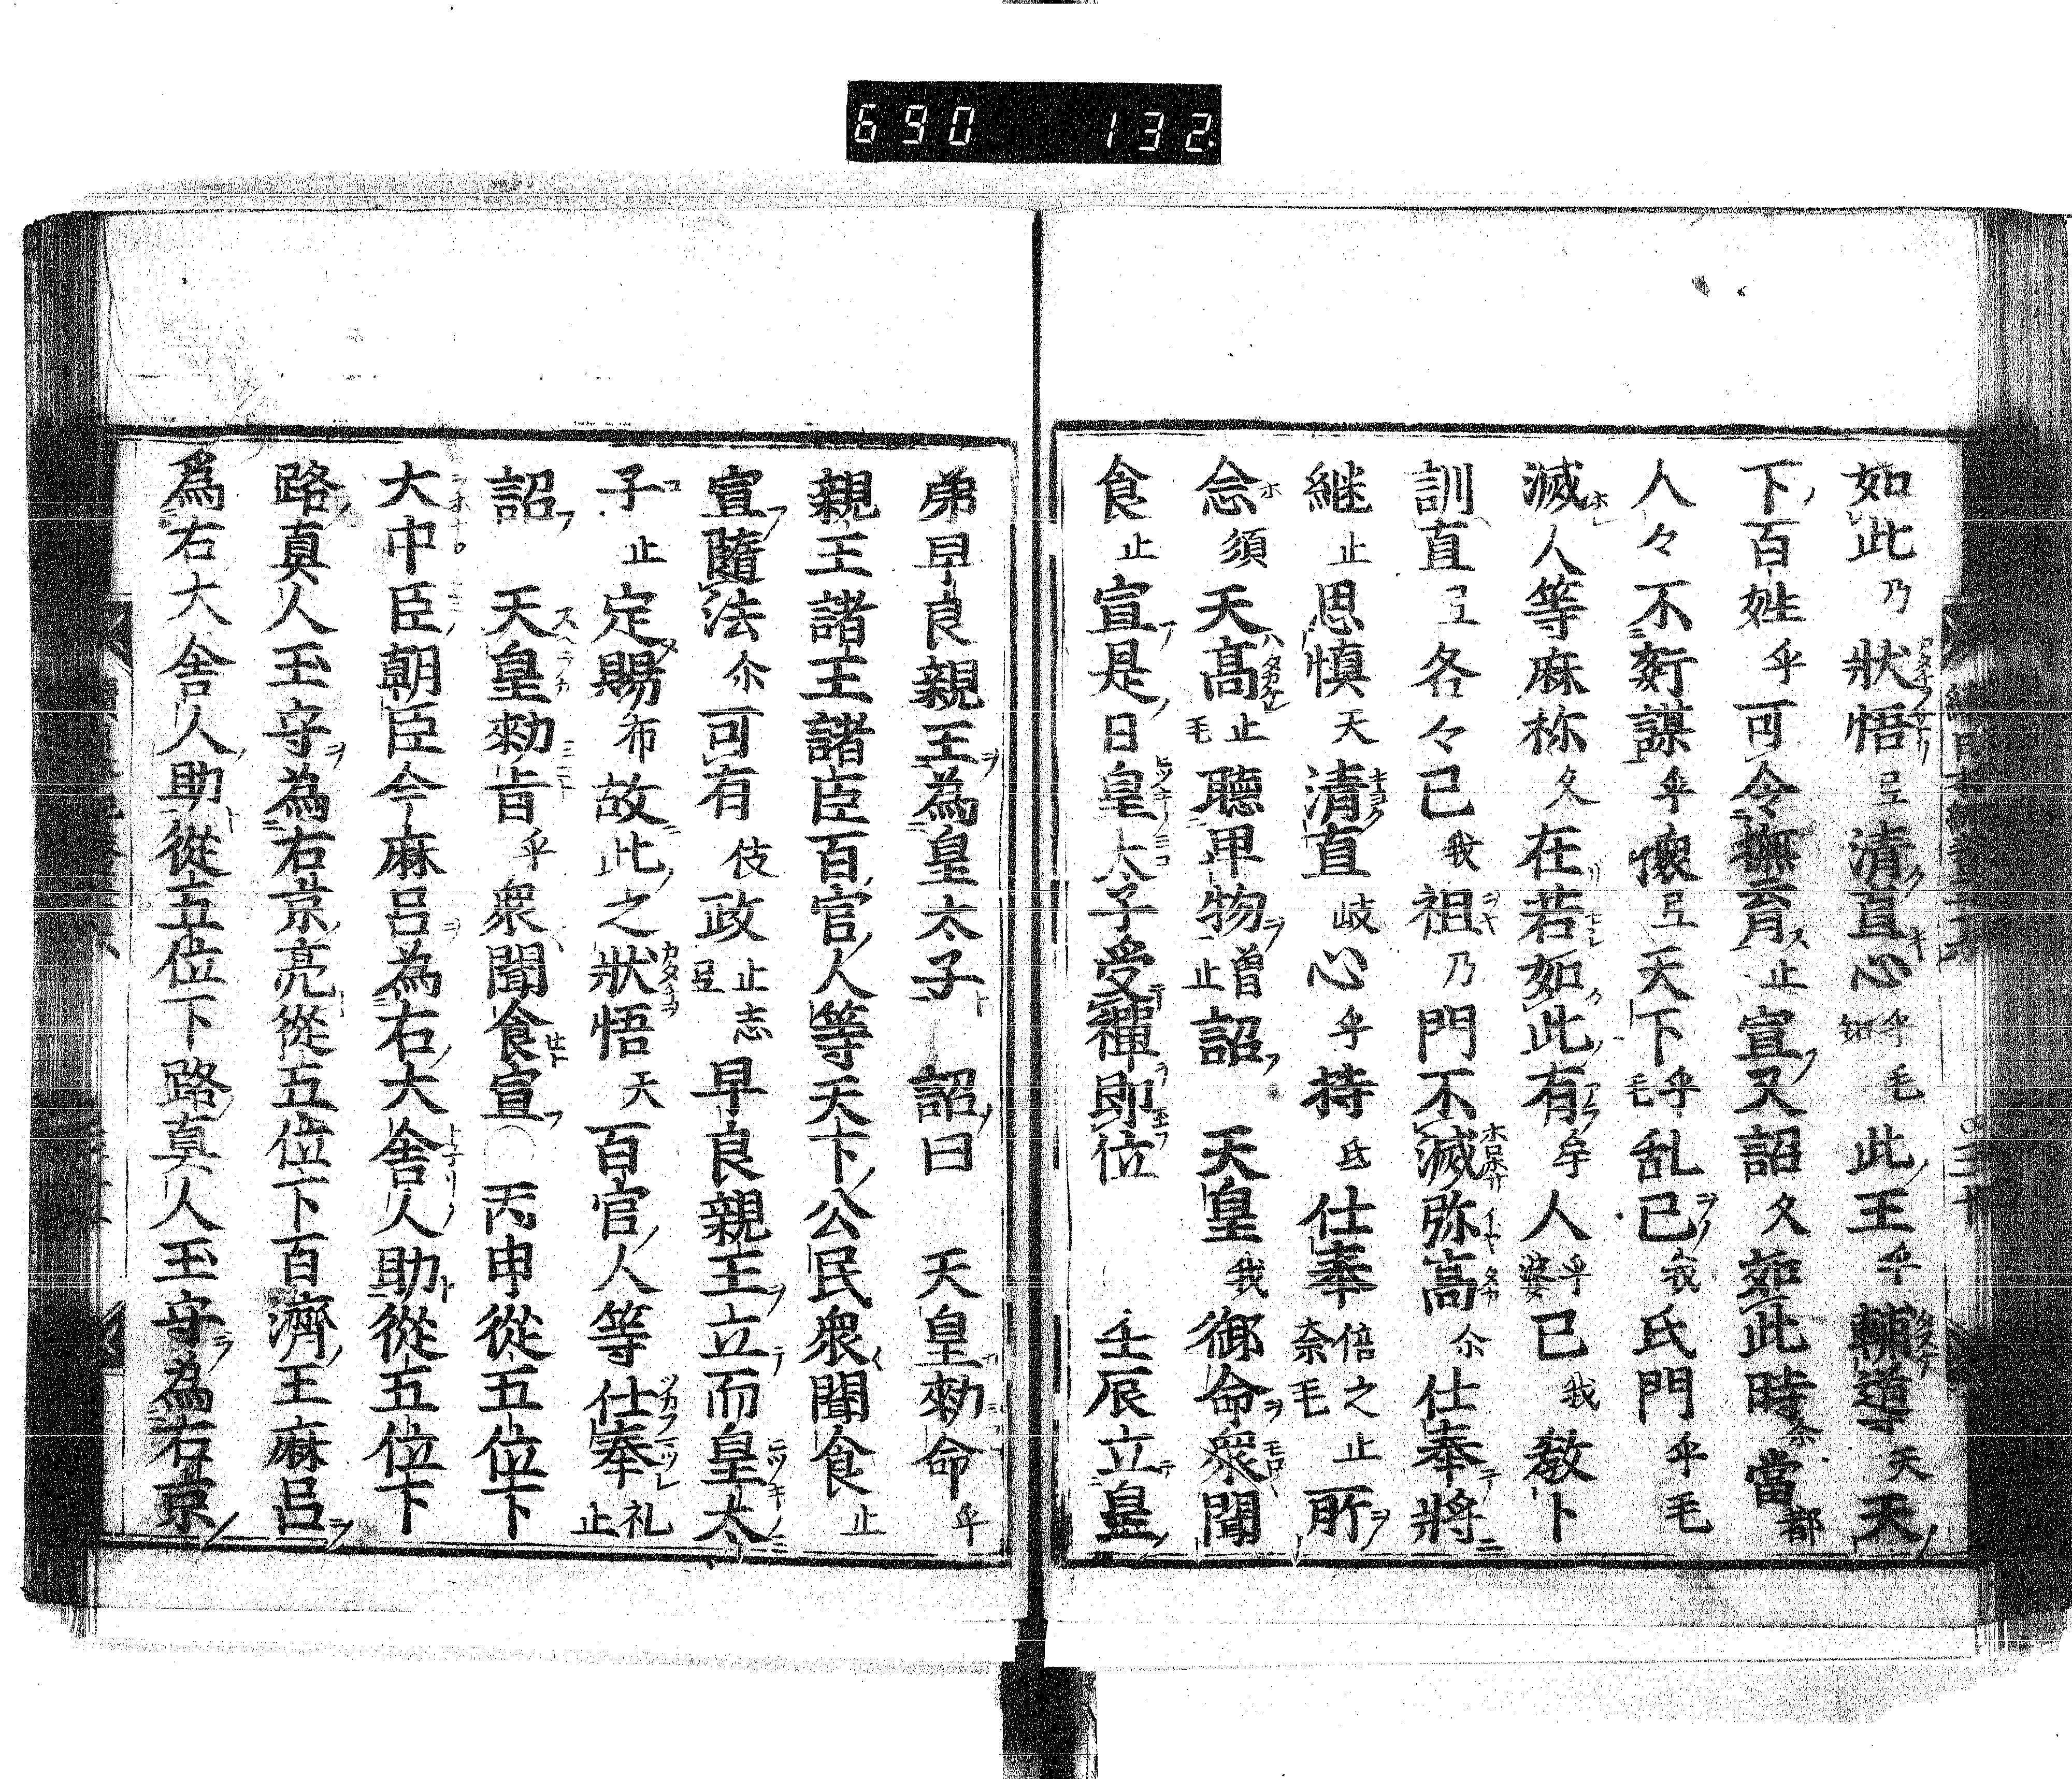 690 132
如此乃狀悟弖清直心乎毛此王乎輔導天天
下百姓乎可令撫育止宣又詔久如此時尓當都
人々不䚹謀乎懷弖天下乎毛乱已我氏門乎毛
滅人等麻称久在若如此有牟人乎婆己我教卜
訓直弖各々己我祖乃門不滅弥高尓仕奉將
継止思慎天清直岐心乎持氐仕奉倍之止奈毛所
念須天高止毛聴卑物曽止詔天皇我御命衆聞
食止宣是日皇太子受禪即位 壬辰立皇
弟早良親王為皇太子詔曰天皇勅命乎
親王諸王諸臣百官人等天下公民衆聞食止
宣隨法尓可有伎政止志弖早良親王立而皇太
子止定賜布故此之狀悟天百官人等仕奉礼止
詔天皇勅旨乎衆聞食宣○丙申從五位下
大中臣朝臣今麻呂為右大舎人助從五位下
路真人玉守為右京亮從五位下百濟王麻呂
為右大舎人助從五位下路真人玉守為右京